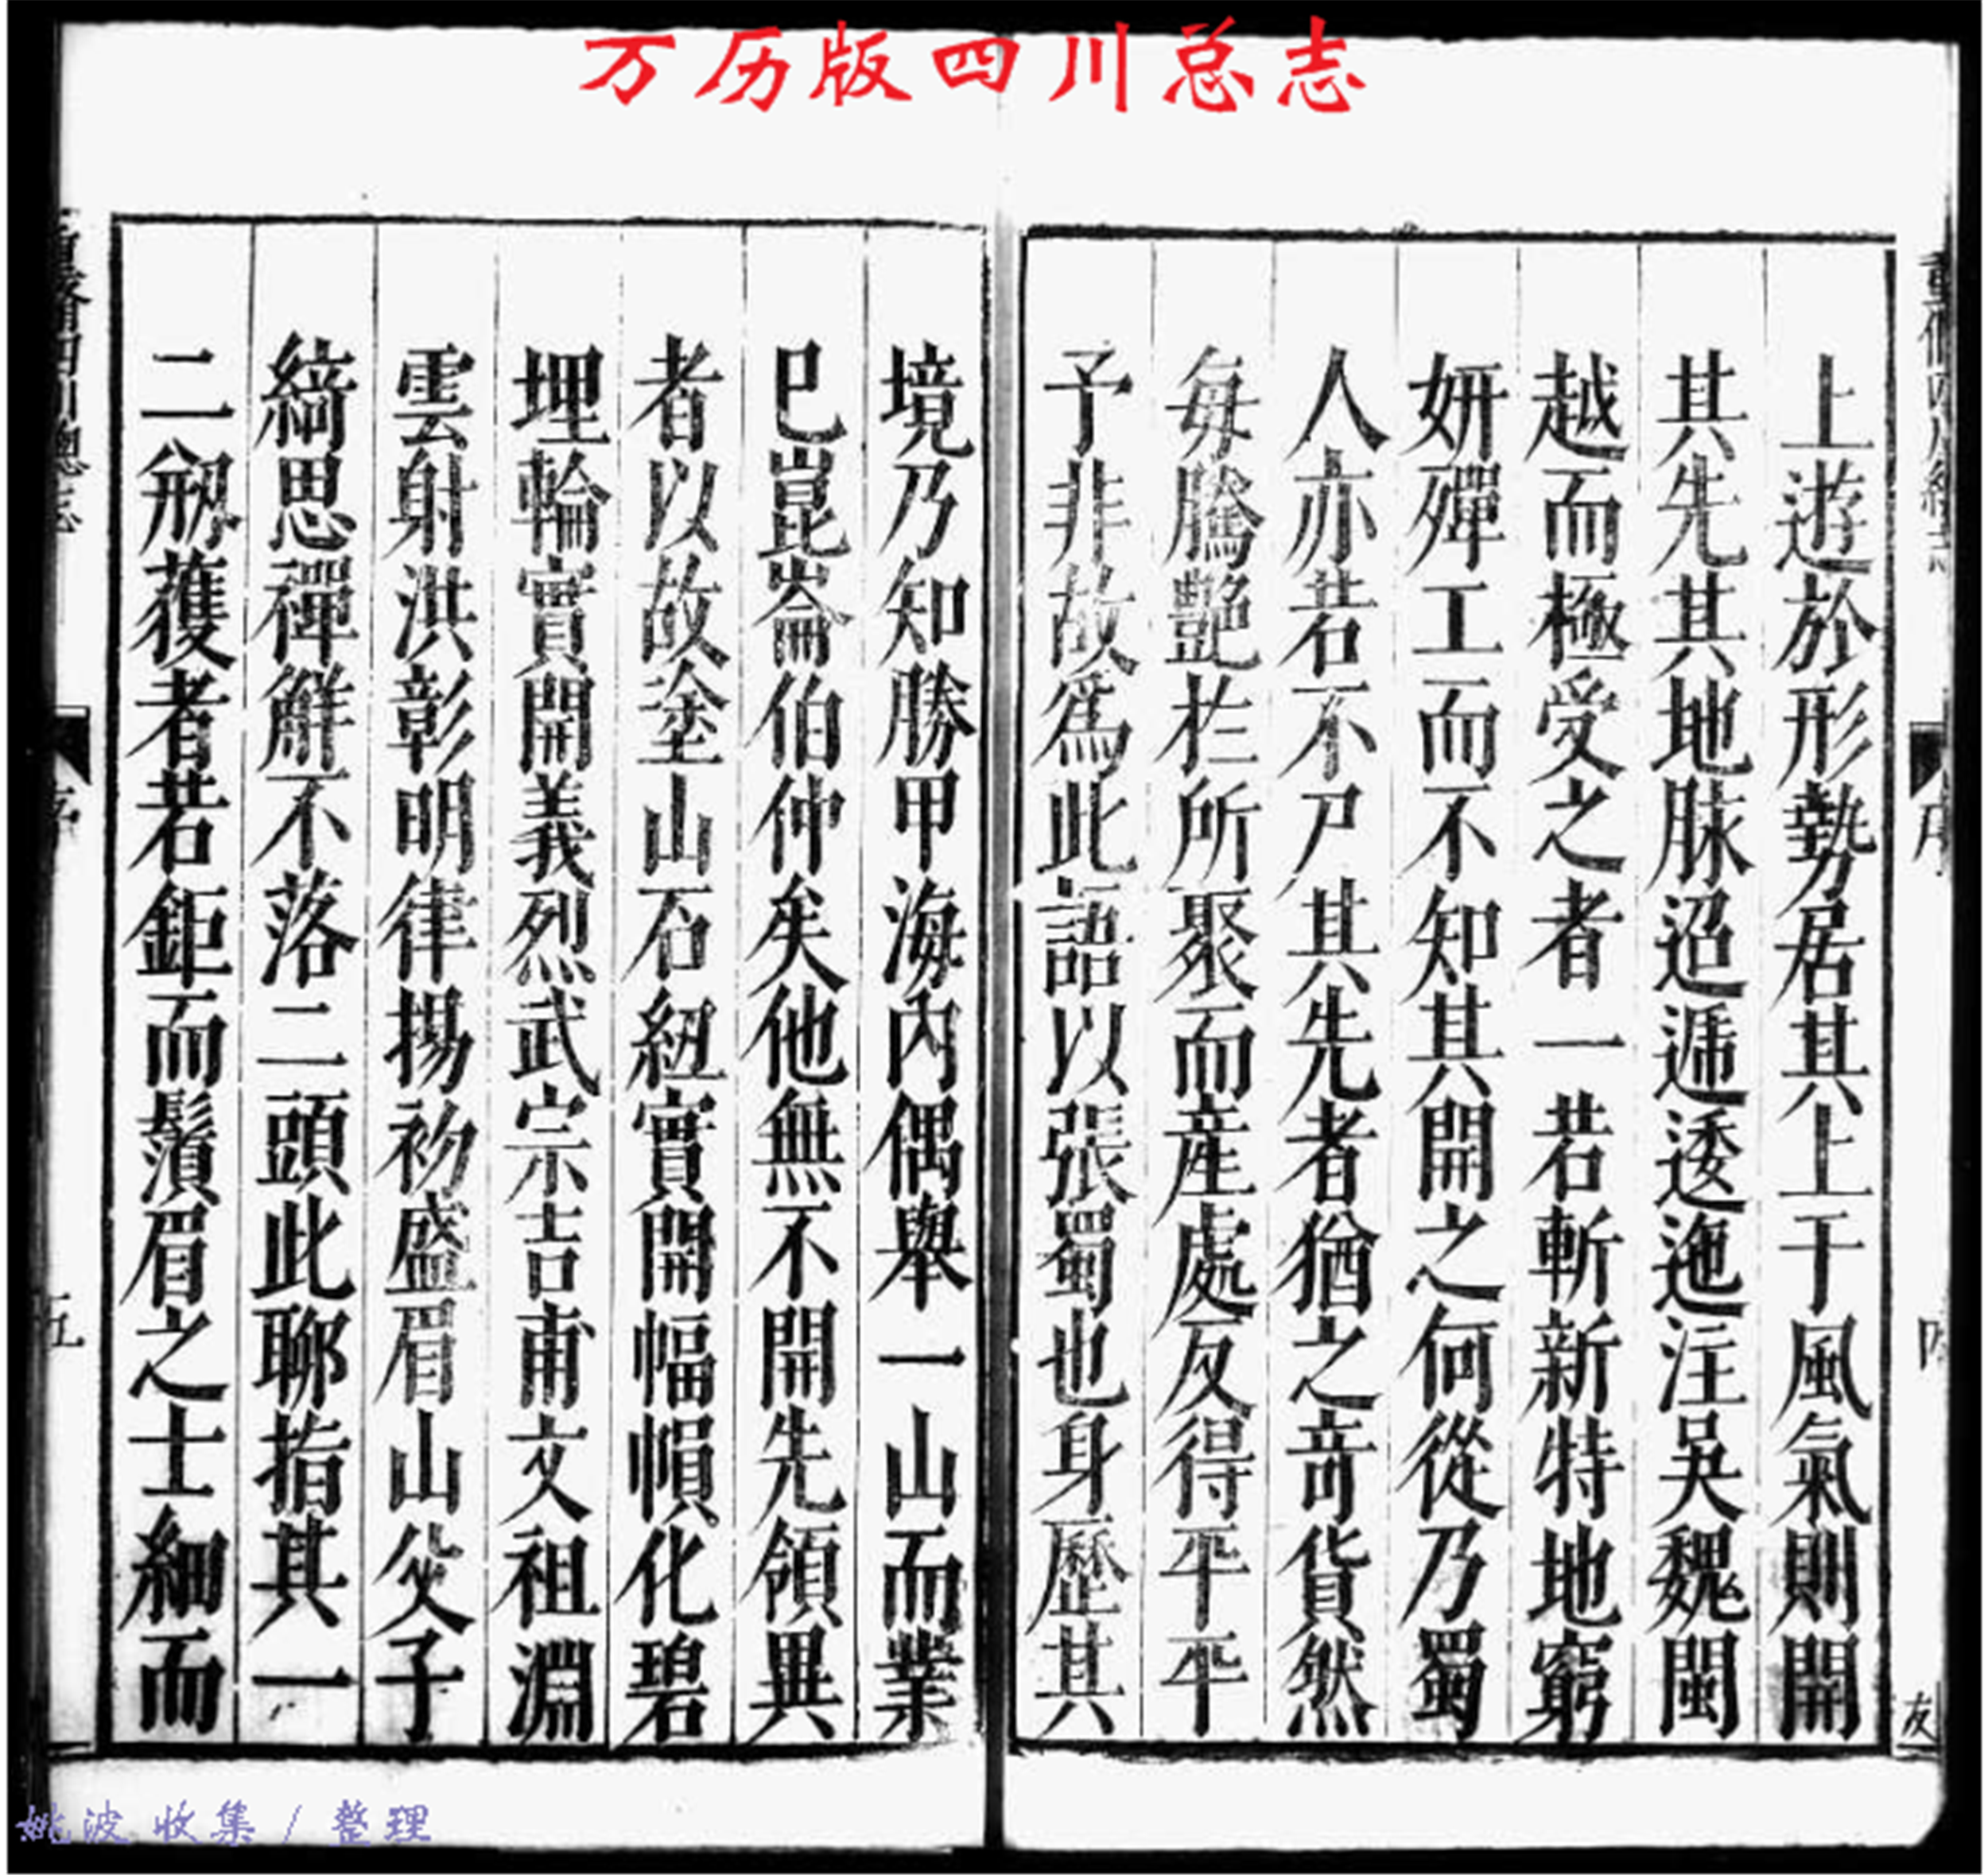 万历版四川总志
上遊於形勢居其上上干風氣則開
其先其地脉迢遞逶迤注吳魏閩
越而極受之者一若斬新特地窮
妍殫工而不知其開之何從乃蜀
人亦若不尸其先者猶之竒貨然
每騰艷於所聚而産處反得平平
予非故爲此語以張蜀也身歷其
境乃知勝甲海內偶舉一山而業
已崑崙伯仲矣他無不開先領異
者以故塗山石紐實開幅幀化碧
埋輪實開義烈武宗吉甫文祖淵
雲射洪彰明律揚初盛眉山父子
綺思禪觧不落二頭此聊指其一
二剏蒦者若鉅而鬚眉之士細而
序
五
姚波 收集 / 整理